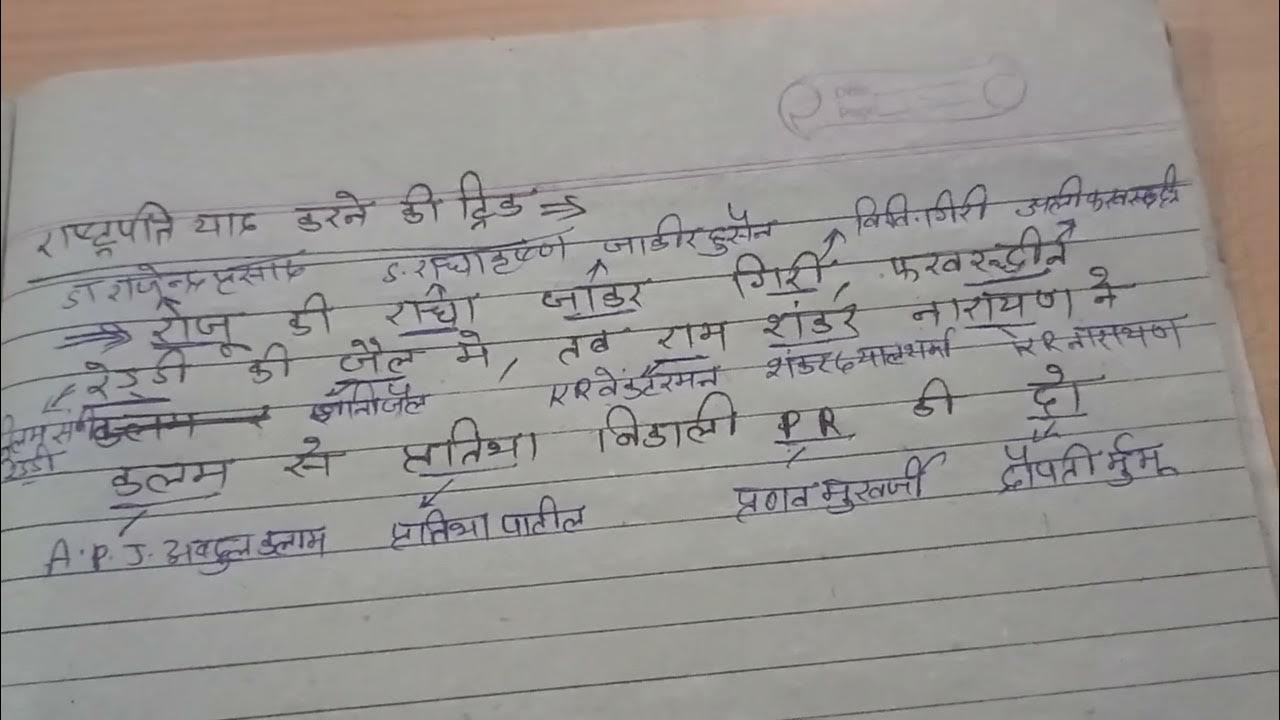 राष्ट्रपति याद करने की ट्रिक ⇒
डा राजेन्द्र प्रसाद ड. राधाकृष्ण जाकीर हुसैन विवि. गिरी
⇒ राजू की राधा जाकिर गिरी फखरूद्दीन
रेड्डी की जैल मे, तब राम शंकर नारायण ने
रेड्डी ज्ञानिजैल RR वेंकटरमन शंकर दयाल शर्मा KR नारायण
कलम से प्रतिभा निकाली PR की द्रो
A.P.J. अबदुल कलाम प्रतिभा पाटील प्रणव मुखर्जी द्रौपती मुर्मू